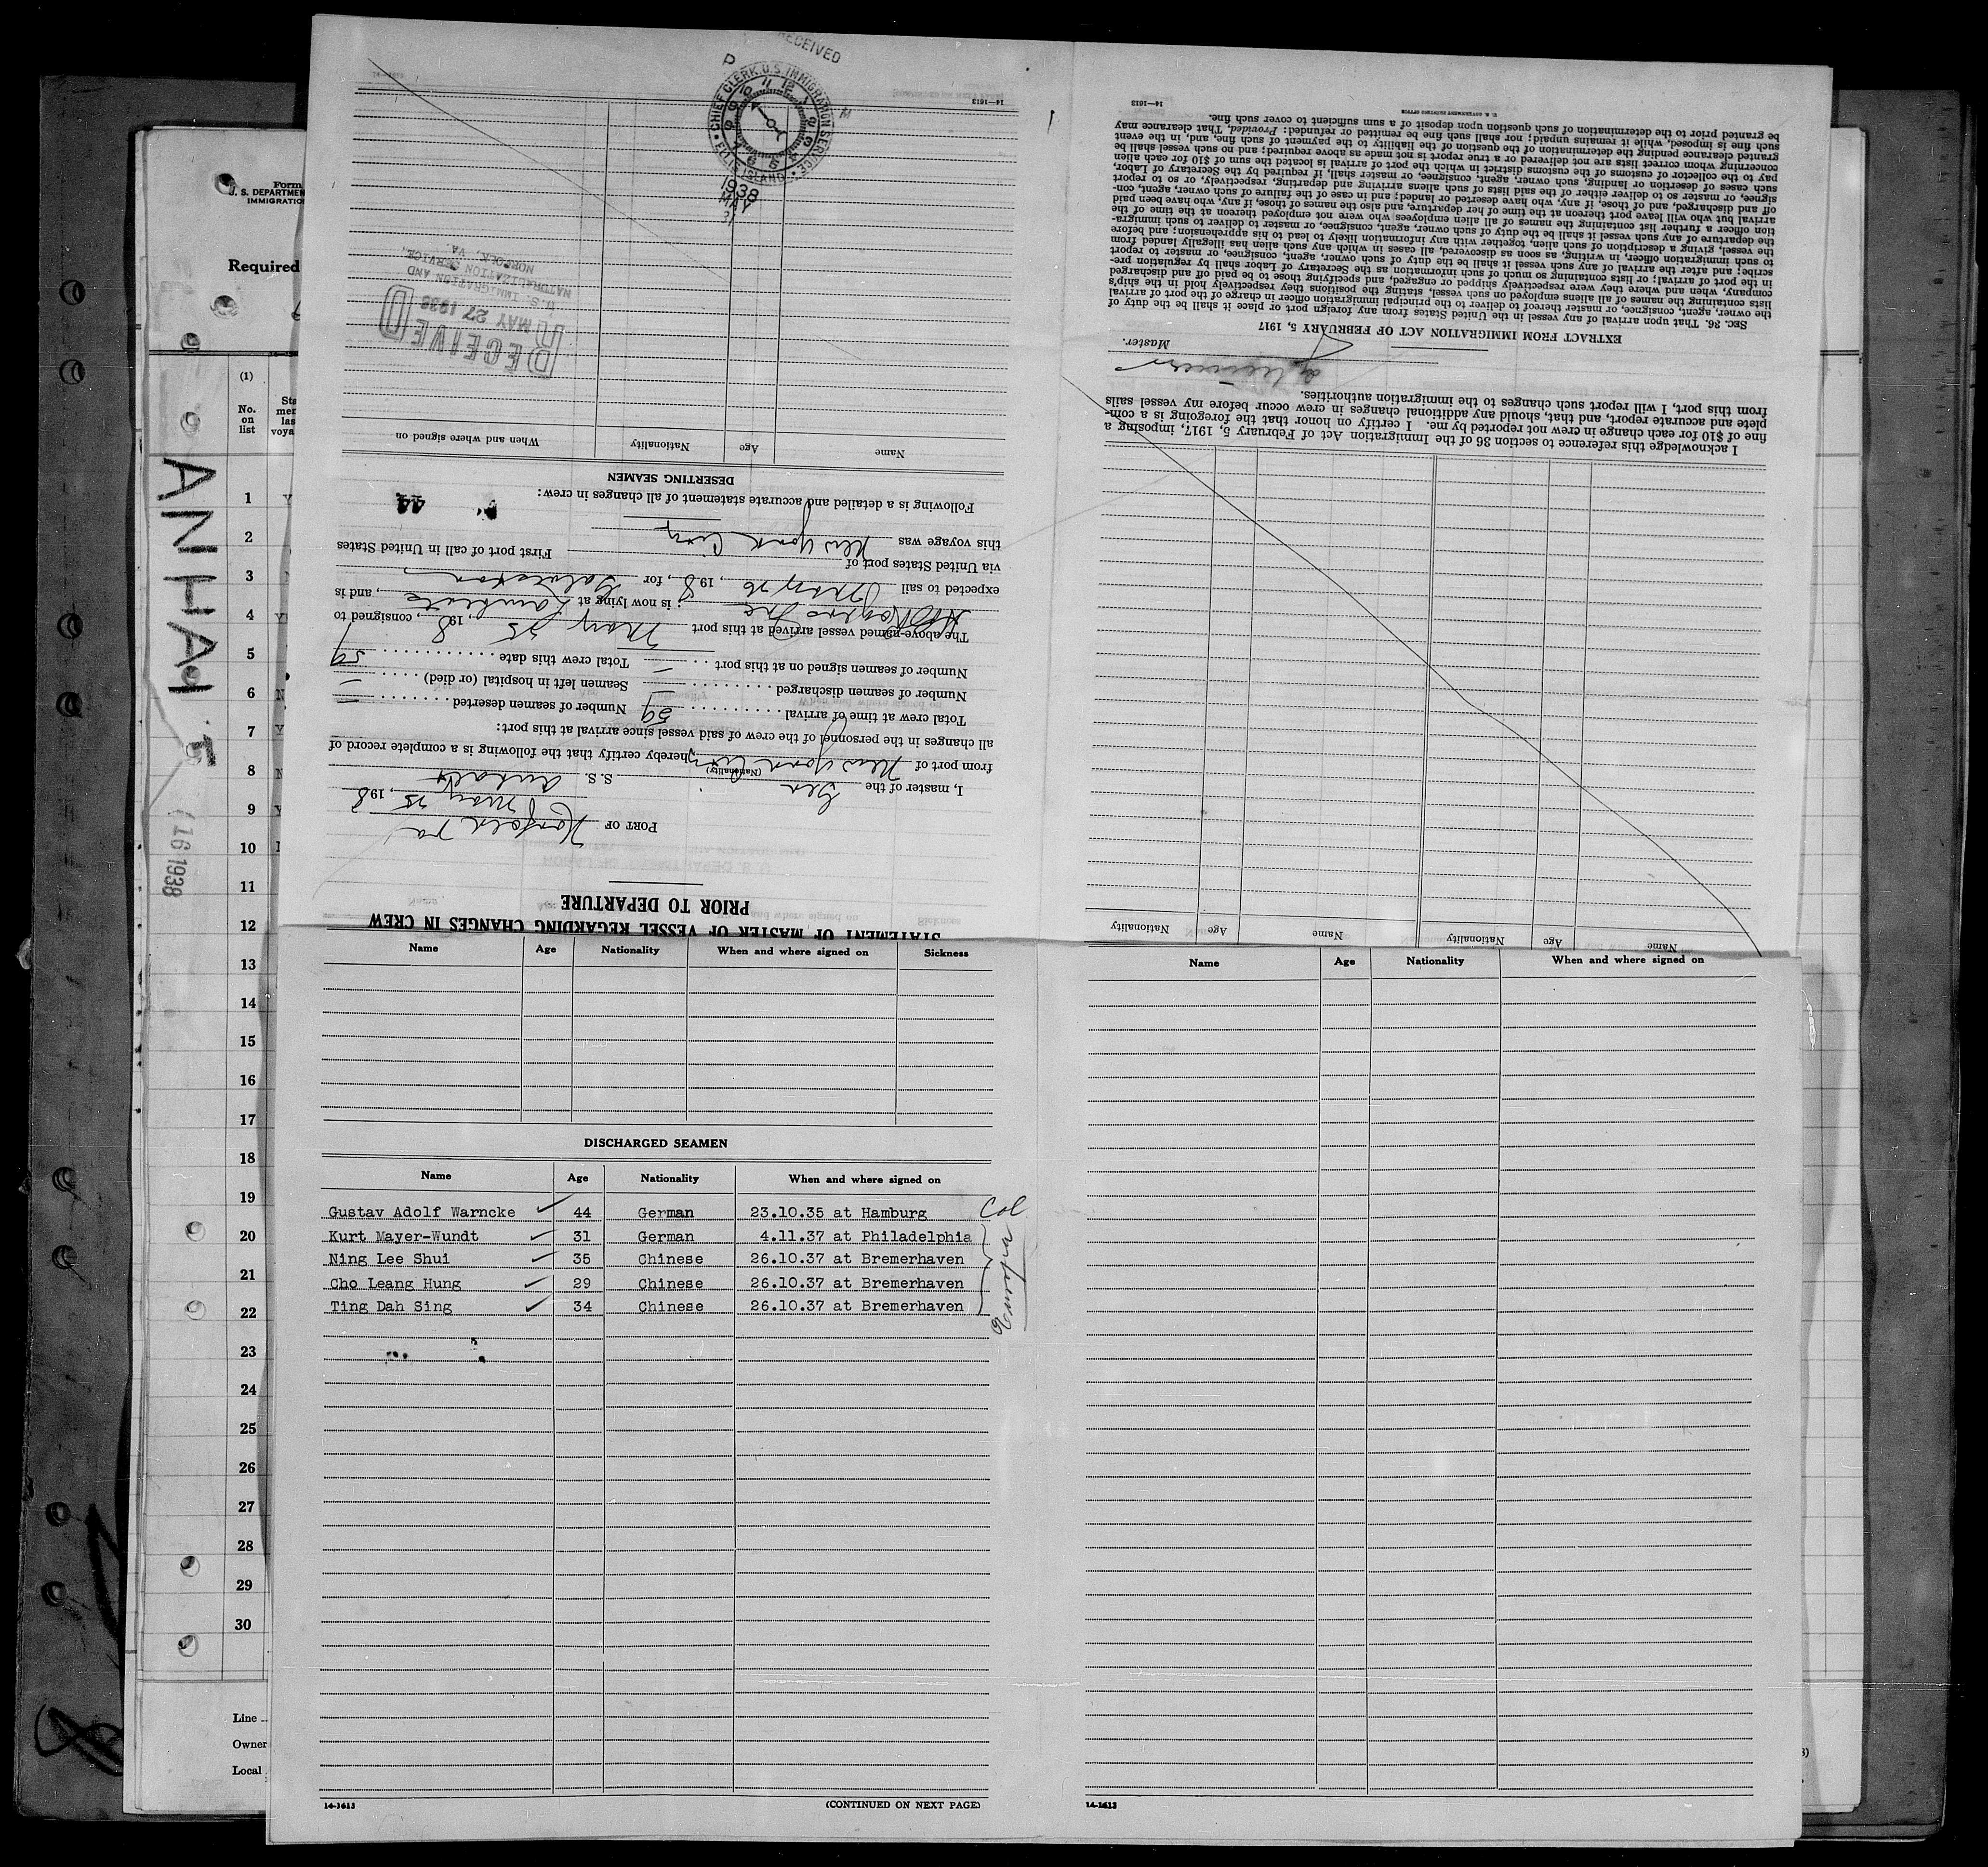 Form
U. S. DEPARTMEN
IMMIGRATIO
Required
(1)
No.
on
list
Sta
mer
las
voya
ANHALT
16 1938
1
2
3
4
5
6
7
8
9
10
11
12
13
14
15
16
17
18
19
20
21
22
23
24
25
26
27
28
29
30
Line
Owner
Local
STATEMENT OF MASTER OF VESSEL REGARDING CHANGES IN CREW
PRIOR TO DEPARTURE
PORT OF Norfolk Va
May 25, 1938
I, master of the Ger S. S. Anhalt
(Nationality)
from port of New York City hereby certify that the following is a complete record of
all changes in the personnel of the crew of said vessel since arrival at this port:
Total crew at time of arrival 59 Number of seamen deserted —
Number of seamen discharged — Seamen left in hospital (or died) —
Number of seamen signed on at this port — Total crew this date 59
The above-named vessel arrived at this port May 25, 1938, consigned to
is now lying at , and is
expected to sail May 26, 1938, for Galveston
via United States port of
First port of call in United States
this voyage was New York City
Following is a detailed and accurate statement of all changes in crew:
44
DESERTING SEAMEN
Name Age Nationality When and where signed on
RECEIVED
MAY 27 1938
U. S. IMMIGRATION AND
NATURALIZATION SERVICE
NORFOLK, VA.
RECEIVED
CHIEF CLERK U.S. IMMIGRATION SERVICE
ELLIS ISLAND
1938
MAY
14—1613
Name Age Nationality Name Age Nationality
I acknowledge this reference to section 36 of the Immigration Act of February 5, 1917, imposing a
fine of $10 for each change in crew not reported by me. I certify on honor that the foregoing is a com-
plete and accurate report, and that, should any additional changes in crew occur before my vessel sails
from this port, I will report such changes to the immigration authorities.
Master.
EXTRACT FROM IMMIGRATION ACT OF FEBRUARY 5, 1917
SEC. 36. That upon arrival of any vessel in the United States from any foreign port or place it shall be the duty of
the owner, agent, consignee, or master thereof to deliver to the principal immigration officer in charge of the port of arrival
lists containing the names of all aliens employed on such vessel, stating the positions they respectively hold in the ship's
company, when and where they were respectively shipped or engaged, and specifying those to be paid off and discharged
in the port of arrival; or lists containing so much of such information as the Secretary of Labor shall by regulation pre-
scribe; and after the arrival of any such vessel it shall be the duty of such owner, agent, consignee, or master to report
to such immigration officer, in writing, as soon as discovered, all cases in which any such alien has illegally landed from
the vessel, giving a description of such alien, together with any information likely to lead to his apprehension; and before
the departure of any such vessel it shall be the duty of such owner, agent, consignee, or master to deliver to such immigra-
tion officer a further list containing the names of all alien employees who were not employed thereon at the time of the
arrival but who will leave port thereon at the time of her departure, and also the names of those, if any, who have been paid
off and discharged, and of those, if any, who have deserted or landed; and in case of the failure of such owner, agent, con-
signee, or master so to deliver either of the said lists of such aliens arriving and departing, respectively, or so to report
such cases of desertion or landing, such owner, agent, consignee, or master shall, if required by the Secretary of Labor,
pay to the collector of customs of the customs district in which the port of arrival is located the sum of $10 for each alien
concerning whom correct lists are not delivered or a true report is not made as above required; and no such vessel shall be
granted clearance pending the determination of the question of the liability to the payment of such fine, and, in the event
such fine is imposed, while it remains unpaid; nor shall such fine be remitted or refunded: Provided, That clearance may
be granted prior to the determination of such question upon deposit of a sum sufficient to cover such fine.
U. S. GOVERNMENT PRINTING OFFICE
14—1613
Name Age Nationality When and where signed on Sickness
DISCHARGED SEAMEN
Name Age Nationality When and where signed on
Gustav Adolf Warncke 44 German 23.10.35 at Hamburg Col
Kurt Mayer-Wundt 31 German 4.11.37 at Philadelphia
Ning Lee Shui 35 Chinese 26.10.37 at Bremerhaven
Cho Leang Hung 29 Chinese 26.10.37 at Bremerhaven
Ting Dah Sing 34 Chinese 26.10.37 at Bremerhaven
Europa
14-1613 (CONTINUED ON NEXT PAGE)
Name Age Nationality When and where signed on
14-1613